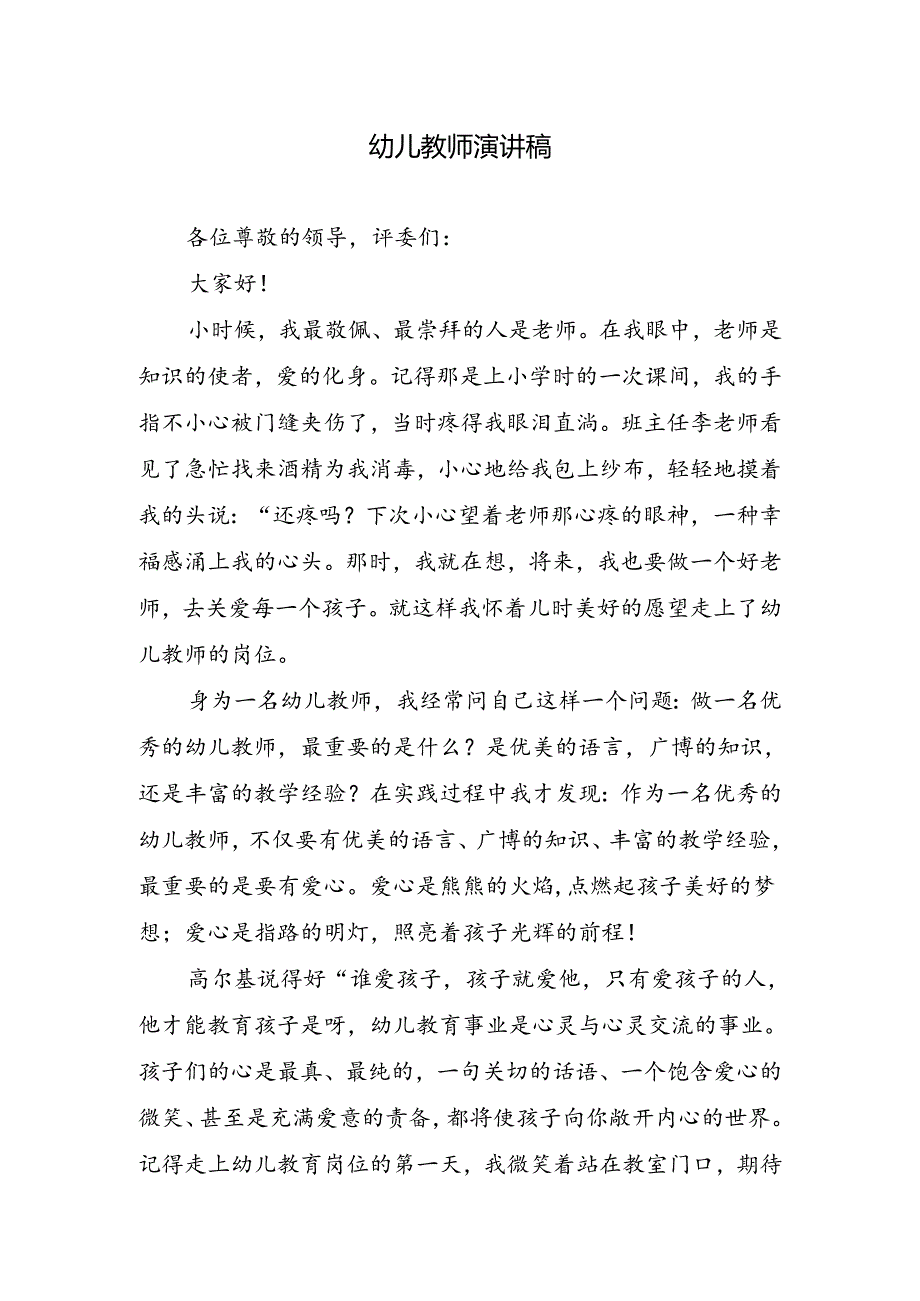 幼儿教师演讲稿
各位尊敬的领导，评委们：
大家好！
小时候，我最敬佩、最崇拜的人是老师。在我眼中，老师是
知识的使者，爱的化身。记得那是上小学时的一次课间，我的手
指不小心被门缝夹伤了，当时疼得我眼泪直淌。班主任李老师看
见了急忙找来酒精为我消毒，小心地给我包上纱布，轻轻地摸着
我的头说：“还疼吗？下次小心望着老师那心疼的眼神，一种幸
福感涌上我的心头。那时，我就在想，将来，我也要做一个好老
师，去关爱每一个孩子。就这样我怀着儿时美好的愿望走上了幼
儿教师的岗位。
身为一名幼儿教师，我经常问自己这样一个问题：做一名优
秀的幼儿教师，最重要的是什么？是优美的语言，广博的知识，
还是丰富的教学经验？在实践过程中我才发现：作为一名优秀的
幼儿教师，不仅要有优美的语言、广博的知识、丰富的教学经验，
最重要的是要有爱心。爱心是熊熊的火焰,点燃起孩子美好的梦
想；爱心是指路的明灯，照亮着孩子光辉的前程！
高尔基说得好“谁爱孩子，孩子就爱他，只有爱孩子的人，
他才能教育孩子是呀，幼儿教育事业是心灵与心灵交流的事业。
孩子们的心是最真、最纯的，一句关切的话语、一个饱含爱心的
微笑、甚至是充满爱意的责备，都将使孩子向你敞开内心的世界。
记得走上幼儿教育岗位的第一天，我微笑着站在教室门口，期待